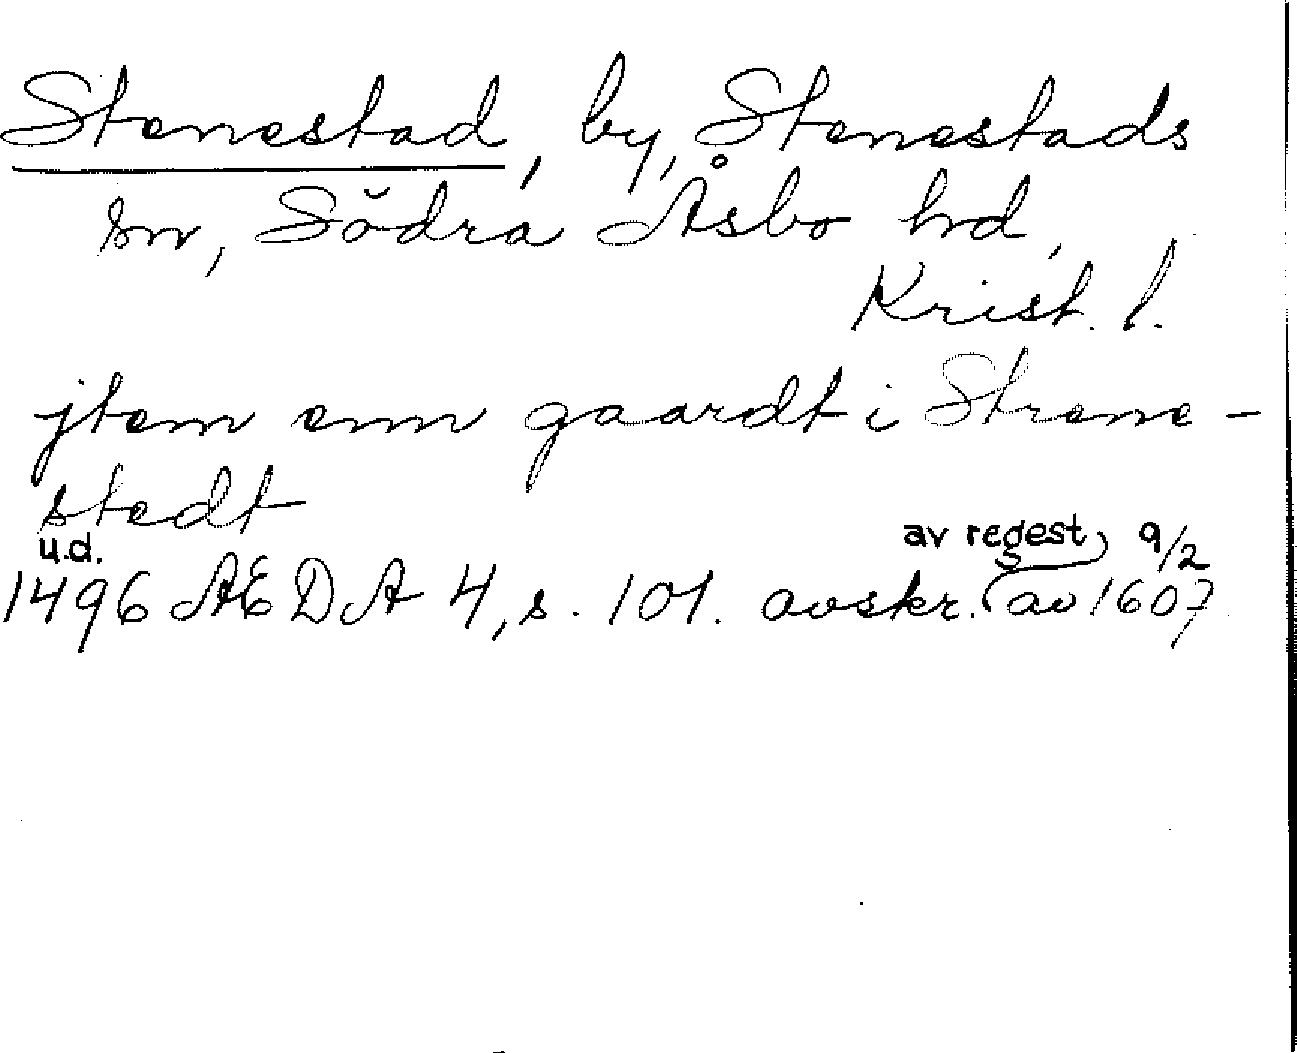 Stenestad, by, Stenestads
sn, Södra Åsbo hd,
Krist. l.
jtem enn gaardt i Strene-
stedt
u.d. av regest, 9/2
1496 AEDA 4, s. 101. avskr. av 1607